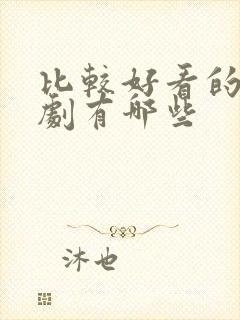 比較好看的
劇有哪些
沐也